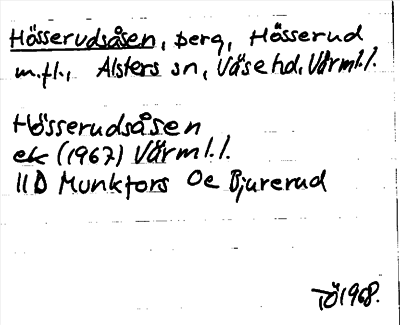 Hösserudsåsen, berg, Hösserud
m.fl., Alsters sn, Väse hd, Värml. l.
Hösserudsåsen
ek (1967) Värml. l.
11D Munkfors Oe Bjurerud
TÖ 1968.